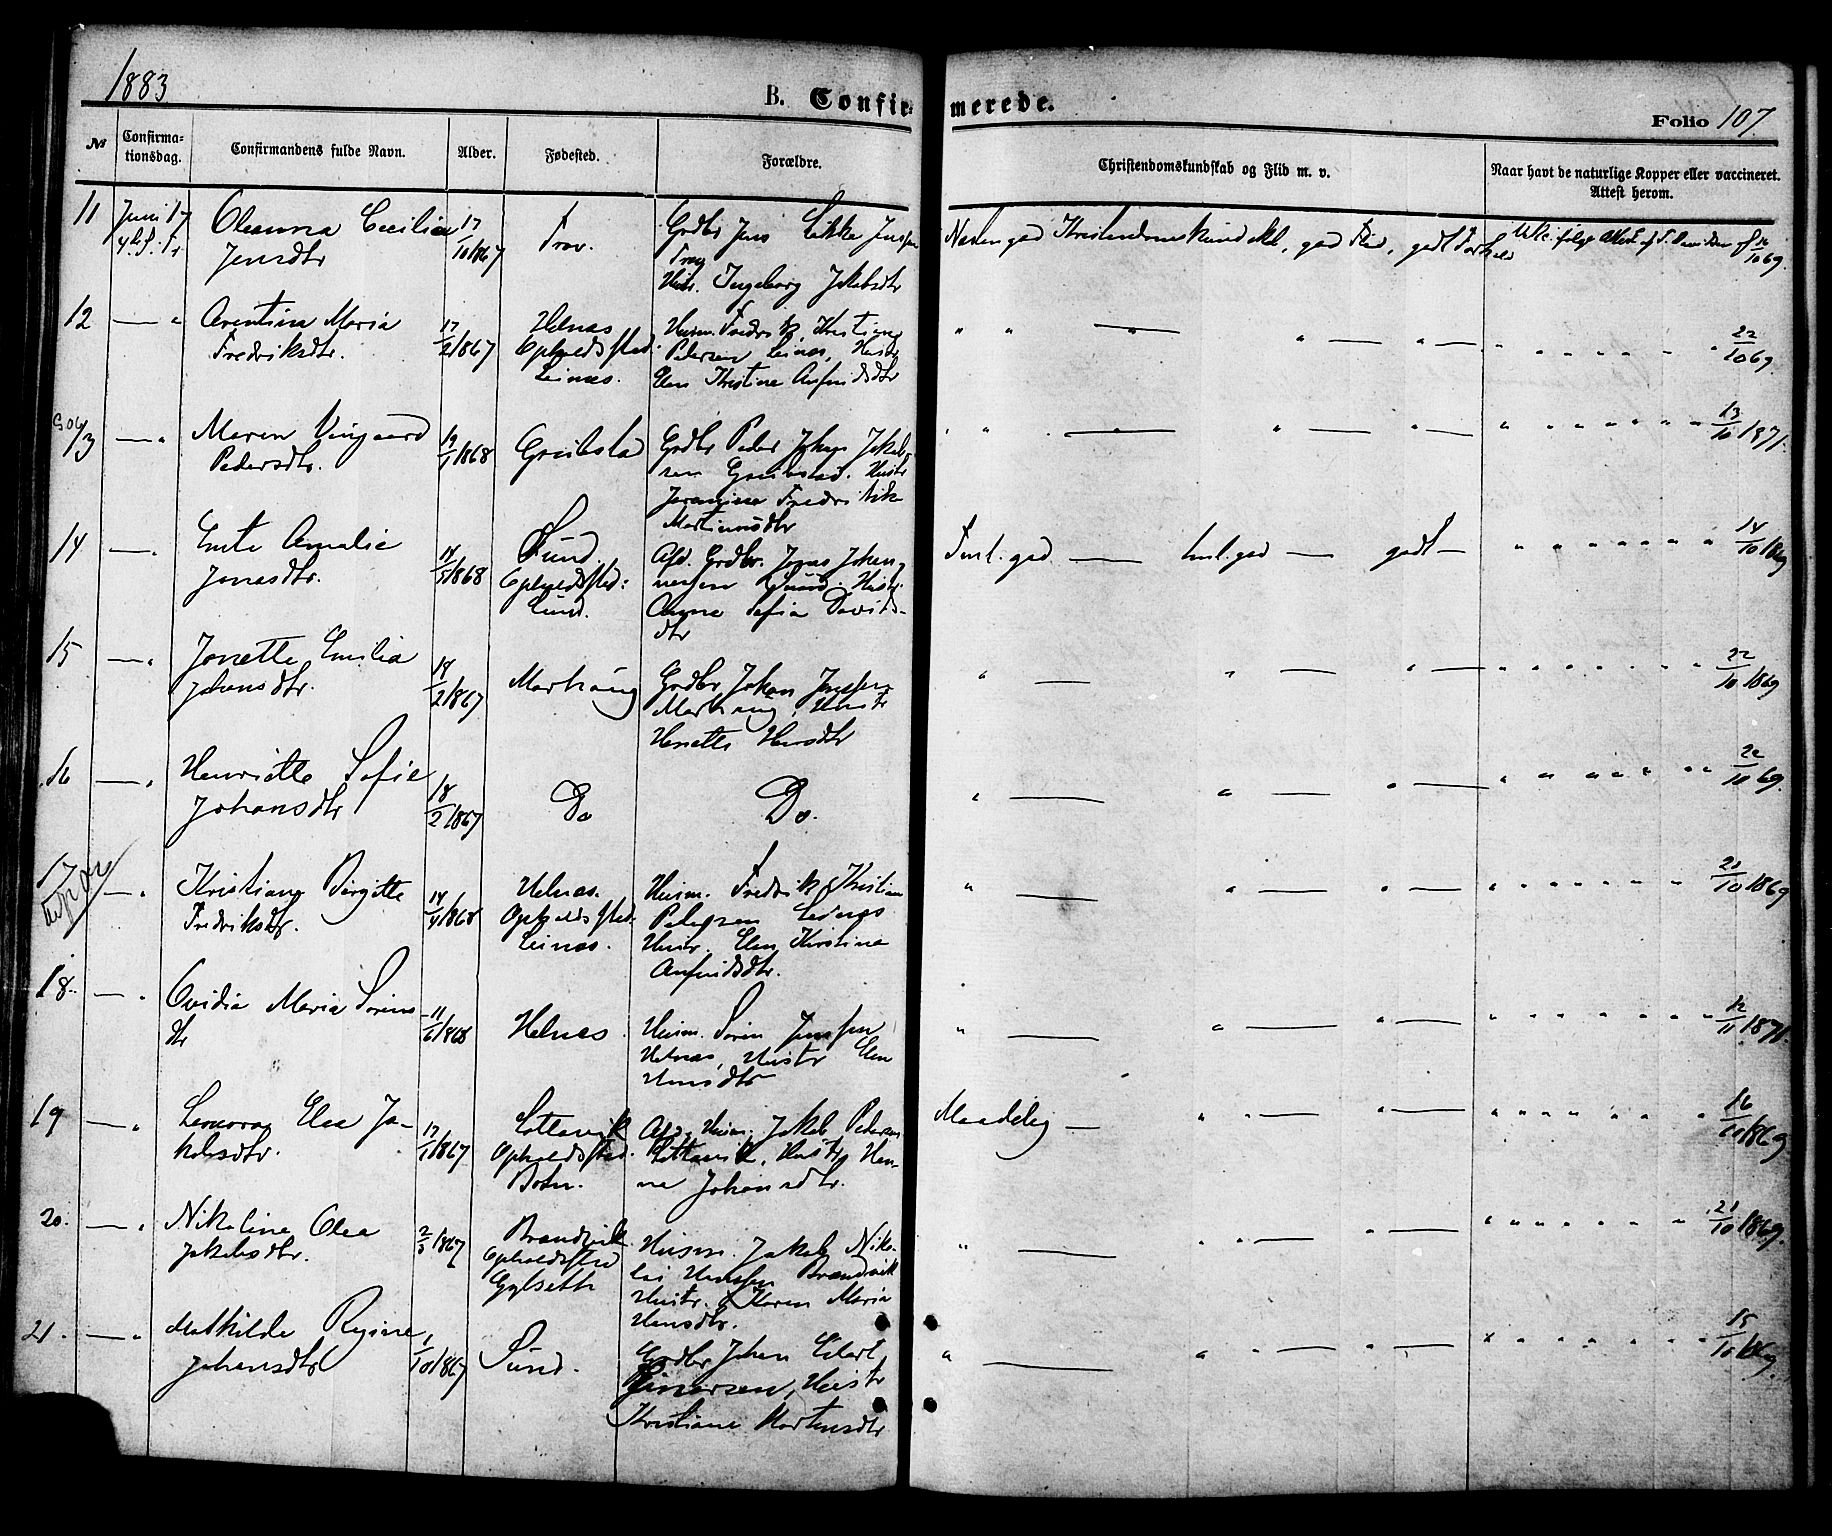 1883
B. Confir-
merede.
Folio 107
№
Confirma-
tionsdag.
Confirmandens fulde Navn.
Alder.
Fødested.
Forældre.
Christendomskundskab og Flid m. v.
Naar havt de naturlige Kopper eller vaccineret.
Attest herom.
11 Juni 17
4. S. e. Tr
Oleanna Cecilia
Jensdtr
17/10 1867
Trøv.
Grdbr Jens Likke Jensen
Trøv
Hstr. Ingeborg Jakobsdtr
Næsten god Kristendomskundskab, god Flid, godt Forhold
16/10 69.
12 — "
Arentina Maria
Fredriksdtr.
17/2 1867
Helnæs
Opholdssted:
Leinæs.
Husm. Fredrik Kristian
Pedersen Leinæs, Hustr
Elen Kristine Anfindsdtr
" " — " — " — " —
22/10 69.
13 — "
Maren Vingaard
Pedersdtr.
19/1 1868
Greibstad
Grdbr Peder Johan Jakob-
sen Greibstad. Hustr
Fredrikke
Martinusdtr
13/10 1871.
14 — "
Ente Amalie
Jonasdtr.
14/5 1868
Sund.
Opholdssted:
Lund.
Afd. Grdbr. Jonas Johan-
nessen Sund. Hustr.
Anne Sofia Davids-
dtr
Tml. god — tml. god — godt —
14/10 1869
15 — "
Jonette Emilia
Johansdtr.
18/2 1867
Marhaug
Grdbr Johan Jensen
Marhaug, Hustr
Henette Hansdtr
22/10 1869
16 — "
Henriette Sofie
Johansdtr
18/2 1867
Do
Do.
22/10 69.
17 — "
Kristiane Birgitte
Fredriksdtr.
14/4 1868
Helnæs.
Opholdssted.
Leinæs.
Husm. Fredrik Kristian
Pedersen Leinæs
Hustr. Elen Kristine
Anfindsdtr.
21/10 1869
18. — "
Ovidia Maria Sørens-
dtr
11/6 1868
Helnæs.
Husm. Søren Jensen
Helnæs, Hustr Elen
Hansdtr
12/11 1871.
19 — "
Lenorag Elea Ja-
kobsdtr.
17/1 1867
Sottavik
Opholdssted.
Botn.
Afd. Husm. Jakob Pedersen
Sottavik, Hustr Han-
na Johansdtr.
Maadelig —
16/10 1869
20. — "
Nikoline Olea
Jakobsdtr.
2/3 1867
Brandvik.
Opholdssted
Gylseth
Husm. Jakob Niko-
lai Hansen Brandvik
Hustr. Karen Maria
Hansdtr.
21/10 1869.
21. — "
Mathilde Regine
Johansdtr
1/10 1867
Sund.
Grdbr Johan Edart
Einersen, Hustr
Kristiane Mortensdtr
15/10 1869.